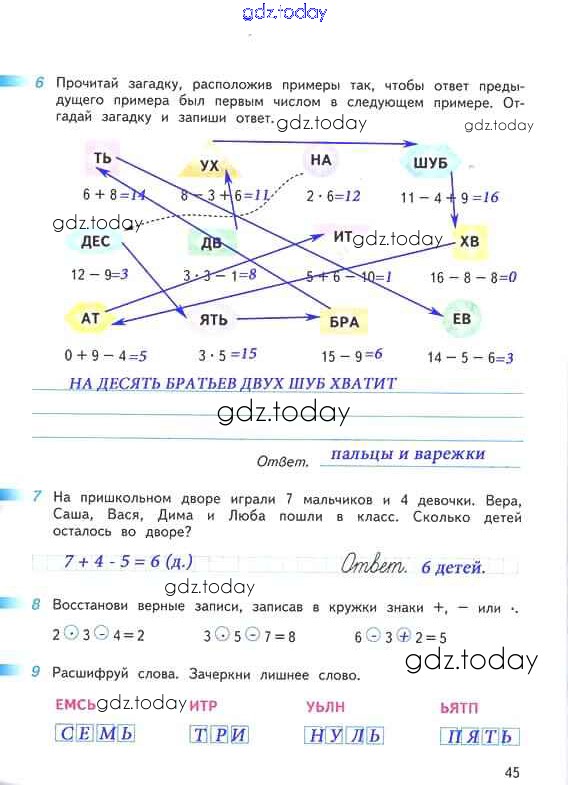 gdz.today
6 Прочитай загадку, расположив примеры так, чтобы ответ преды-
дущего примера был первым числом в следующем примере. От-
гадай загадку и запиши ответ.
gdz.today gdz.today
ТЬ УХ НА ШУБ
6 + 8=14 8 − 3 + 6=11 2 · 6=12 11 − 4 + 9 =16
gdz.today
ДЕС ДВ ИТ gdz.today ХВ
12 − 9=3 3 · 3 − 1=8 5 + 6 − 10=1 16 − 8 − 8=0
АТ ЯТЬ БРА ЕВ
0 + 9 − 4=5 3 · 5 =15 15 − 9 =6 14 − 5 − 6=3
НА ДЕСЯТЬ БРАТЬЕВ ДВУХ ШУБ ХВАТИТ
gdz.today
Ответ. пальцы и варежки
7 На пришкольном дворе играли 7 мальчиков и 4 девочки. Вера,
Саша, Вася, Дима и Люба пошли в класс. Сколько детей
осталось во дворе?
7 + 4 - 5 = 6 (д.) Ответ. 6 детей.
gdz.today
8 Восстанови верные записи, записав в кружки знаки +, − или ·.
2 · 3 − 4 = 2 3 · 5 − 7 = 8 6 − 3 + 2 = 5
gdz.today
9 Расшифруй слова. Зачеркни лишнее слово.
ЕМСЬ gdz.today ИТР УЬЛН ЬЯТП
СЕМЬ ТРИ НУЛЬ ПЯТЬ
gdz.today
45